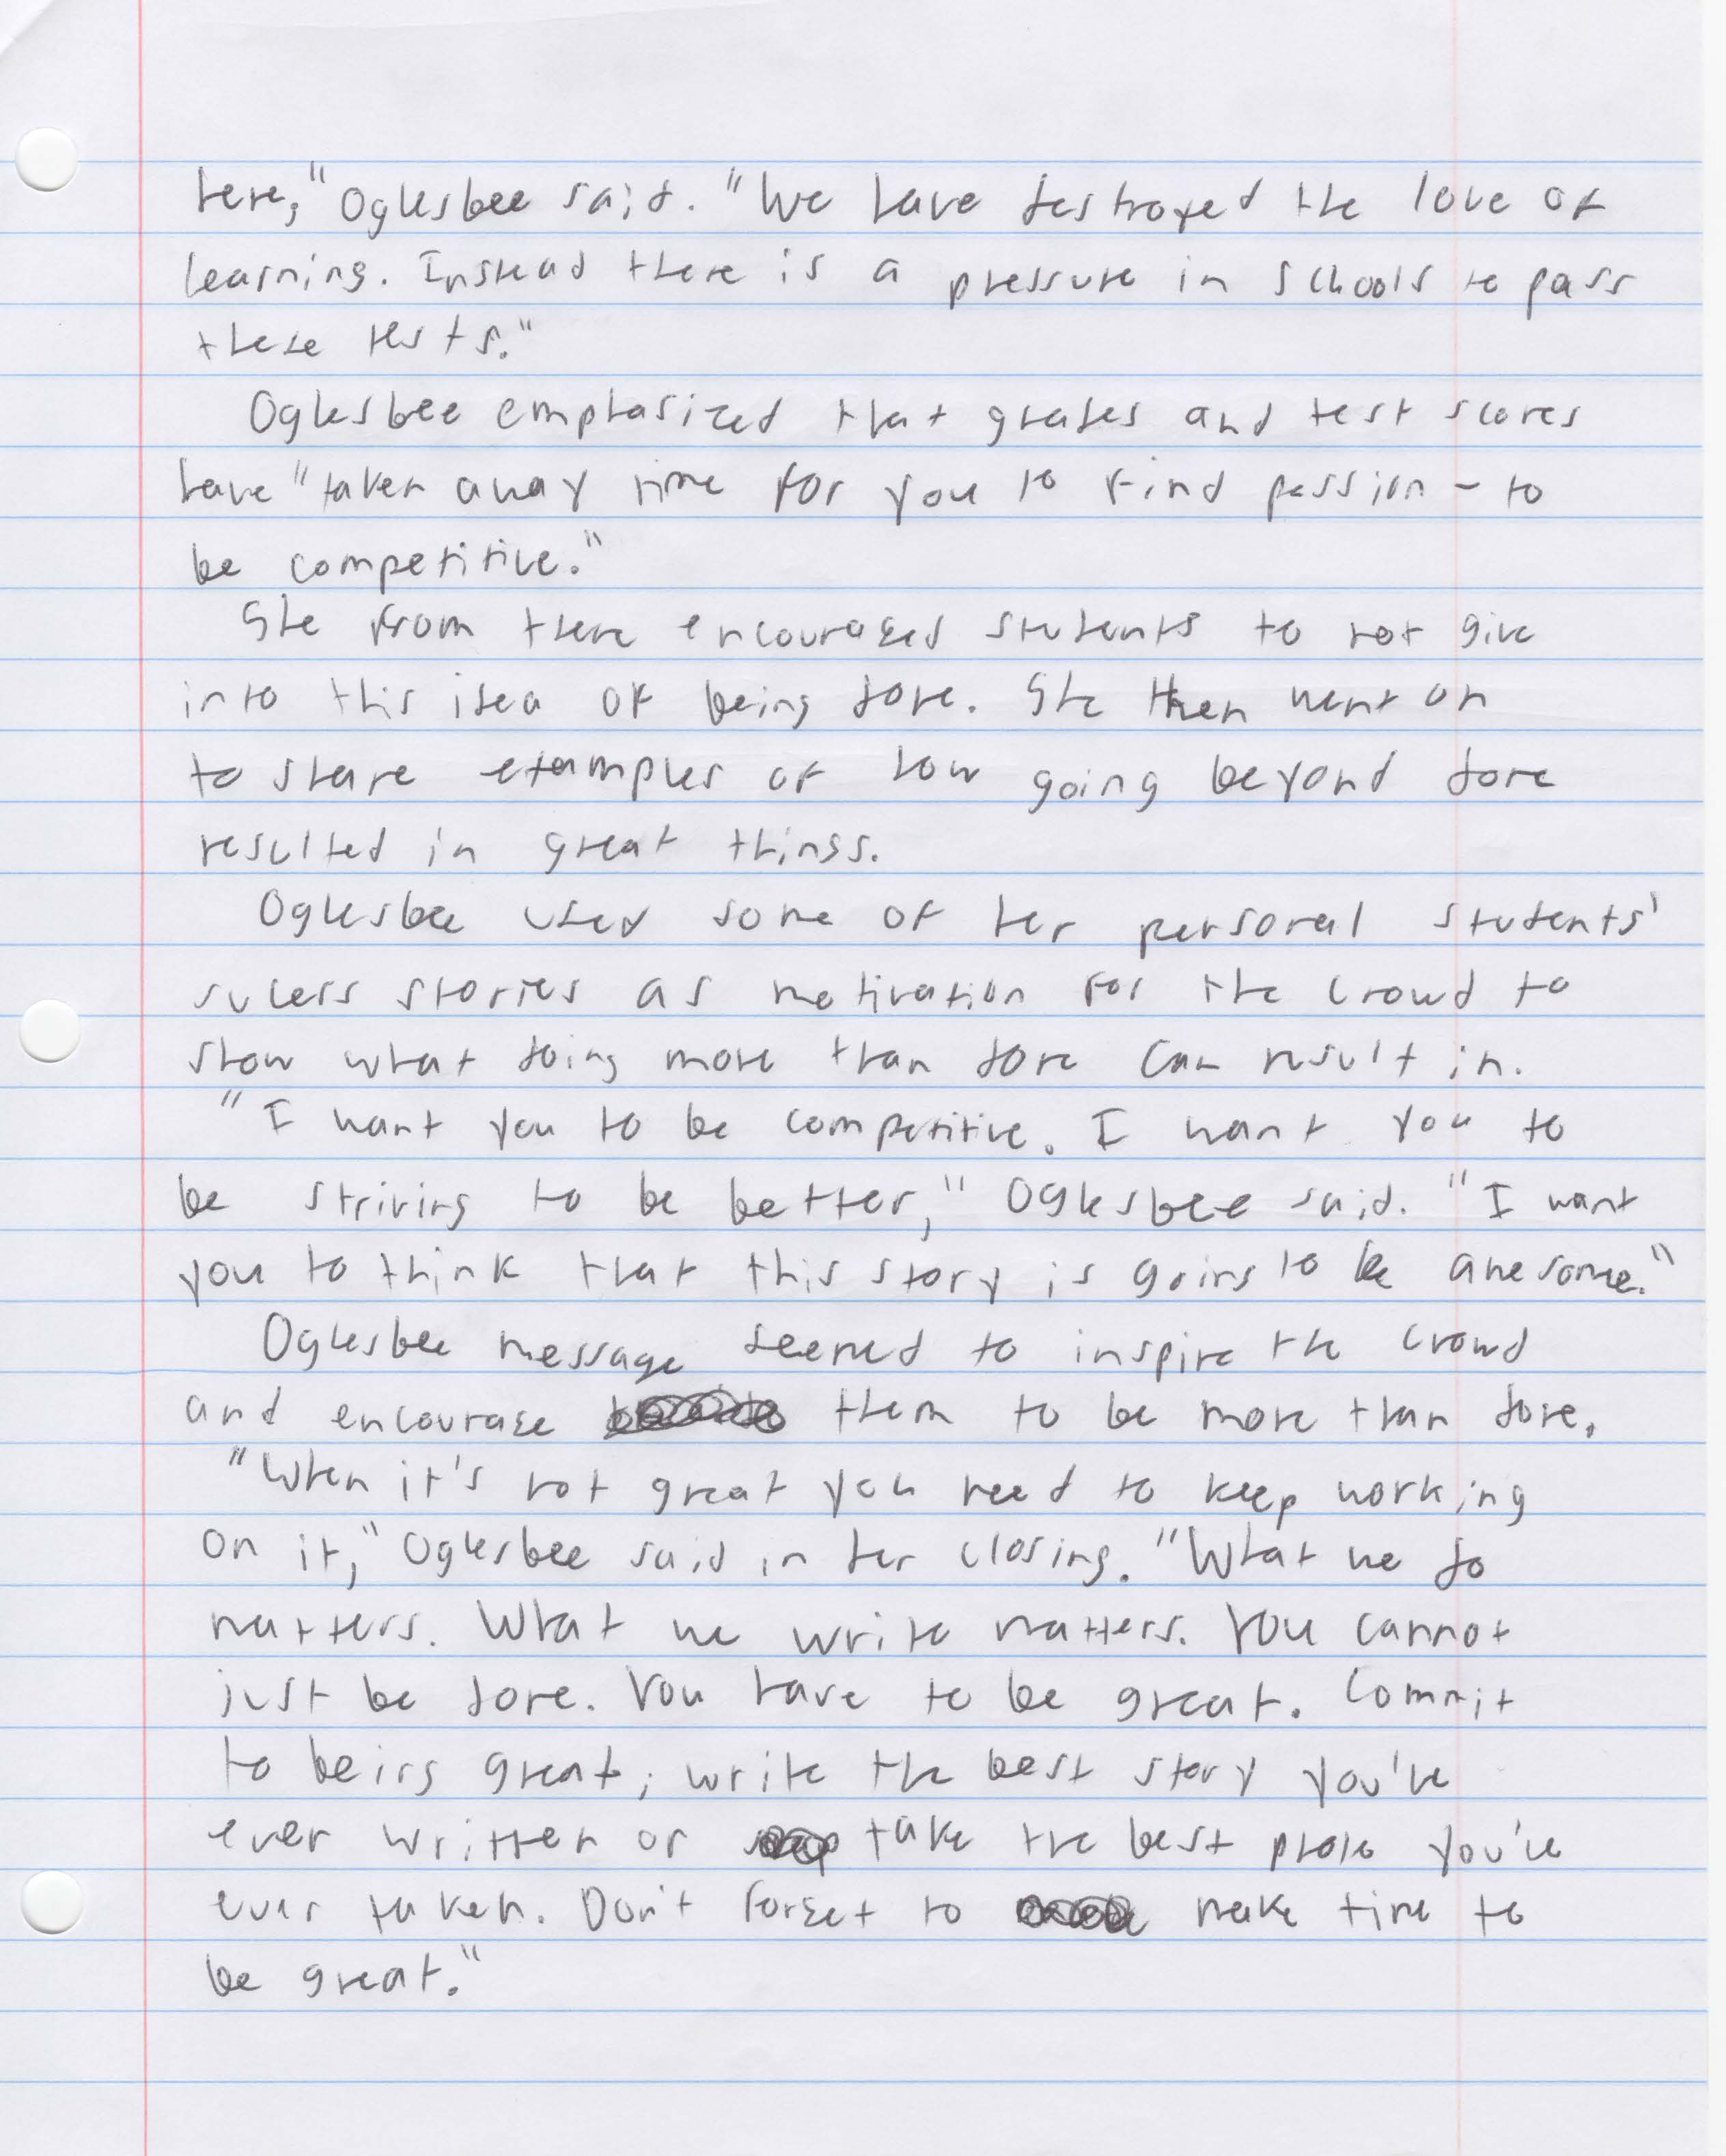 here," Oglesbee said. "We have destroyed the love of
learning. Instead there is a pressure in schools to pass
these tests."
Oglesbee emphasized that grades and test scores
have "taken away time for you to find passion - to
be competitive."
She from there encouraged students to not give
into this idea of being done. She then went on
to share examples of how going beyond done
resulted in great things.
Oglesbee used some of her personal students'
sucess stories as motivation for the crowd to
show what doing more than done can result in.
"I want you to be competitive. I want you to
be striving to be better," Oglesbee said. "I want
you to think that this story is going to be awesome."
Oglesbee message seemed to inspire the crowd
and encourage them to be more than done.
"When it's not great you need to keep working
on it," Oglesbee said in her closing. "What we do
matters. What we write matters. You cannot
just be done. You have to be great. Commit
to being great; write the best story you've
ever written or take the best photo you've
ever taken. Don't forget to make time to
be great."